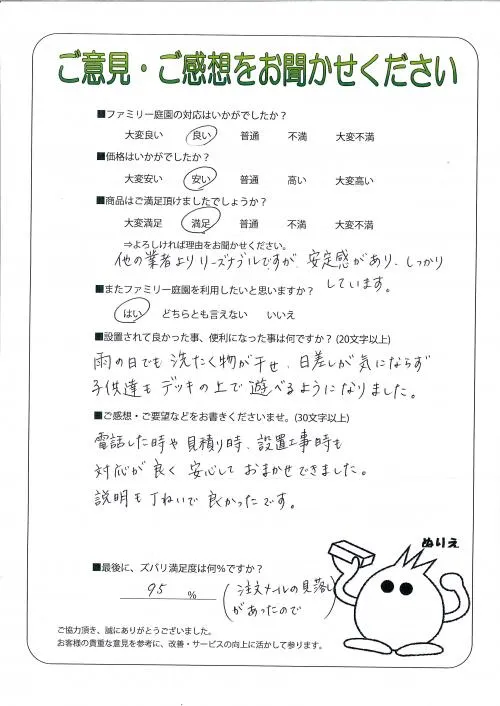 ご意見・ご感想をお聞かせください
■ファミリー庭園の対応はいかがでしたか？
大変良い 良い 普通 不満 大変不満
■価格はいかがでしたか？
大変安い 安い 普通 高い 大変高い
■商品はご満足頂けましたでしょうか？
大変満足 満足 普通 不満 大変不満
⇒よろしければ理由をお聞かせください。
他の業者よりリーズナブルですが、安定感があり、しっかり
しています。
■またファミリー庭園を利用したいと思いますか？
はい どちらとも言えない いいえ
■設置されて良かった事、便利になった事は何ですか？(20文字以上)
雨の日でも洗たく物が干せ、日差しが気にならず
子供達もデッキの上で遊べるようになりました。
■ご感想・ご要望などをお書きくださいませ。(30文字以上)
電話した時や見積り時、設置工事時も
対応が良く安心しておまかせできました。
説明も丁ねいで良かったです。
ぬりえ
■最後に、ズバリ満足度は何％ですか？
95 ％ (注文メールの見落し
があったので)
ご協力頂き、誠にありがとうございました。
お客様の貴重な意見を参考に、改善・サービスの向上に活かして参ります。